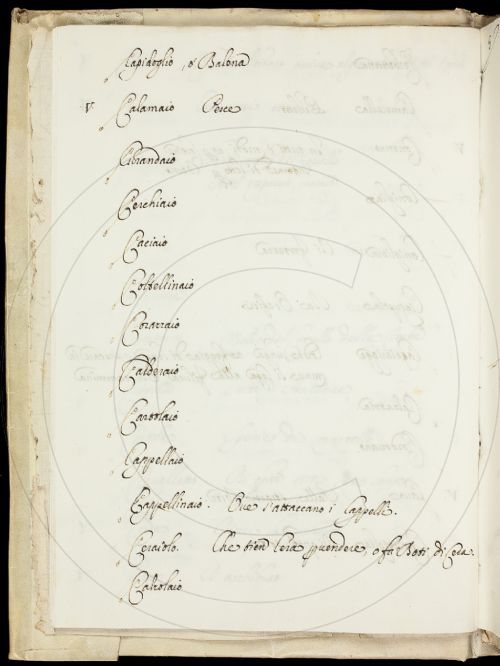 Capidoglio, ò Balena
V. Calamaio Pesce
Cerchiaio
Caciaio
Coltellinaio
Corazzaio
Calderaio
Cartolaio
Cappellaio
Cappellinaio. Dve s'attaccano i Cappelli.
Ceraiolo. Che tien Cera uendere, o fa Boti di Cera.
Calzolaio